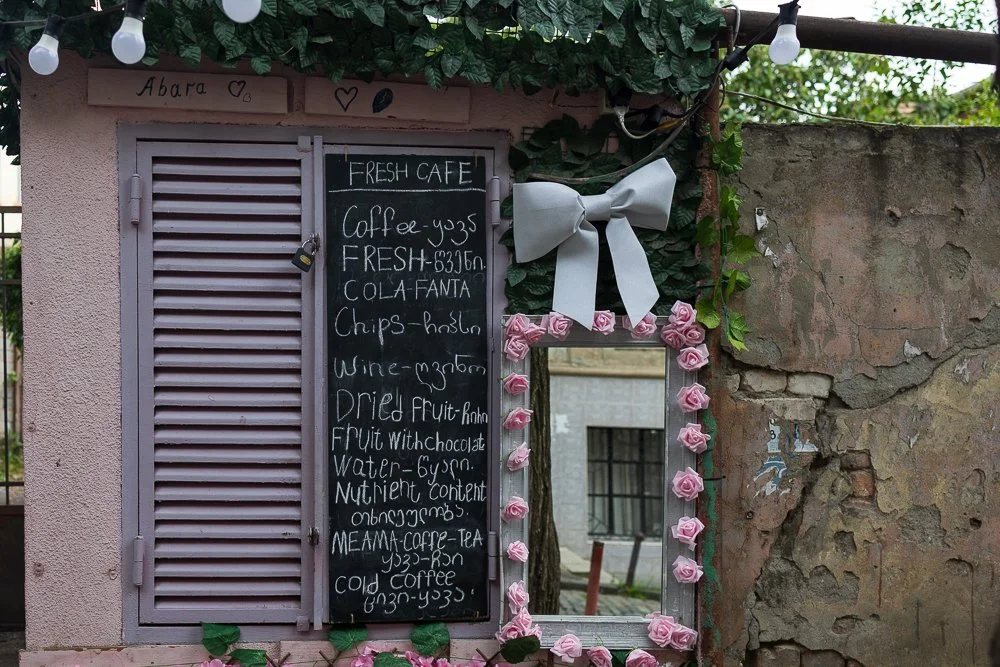 Abara
FRESH CAFE
Coffee-ყავა
FRESH-წვენი.
COLA-FANTA
Chips-ჩიფსი
Wine-ღვინო
Dried Fruit-ჩირი
Fruit with chocolate
Water-წყალი.
Nutrient content
MEAMA-COFFE-TEA
ყავა-ჩაი
Cold Coffee
ცივი-ყავა.